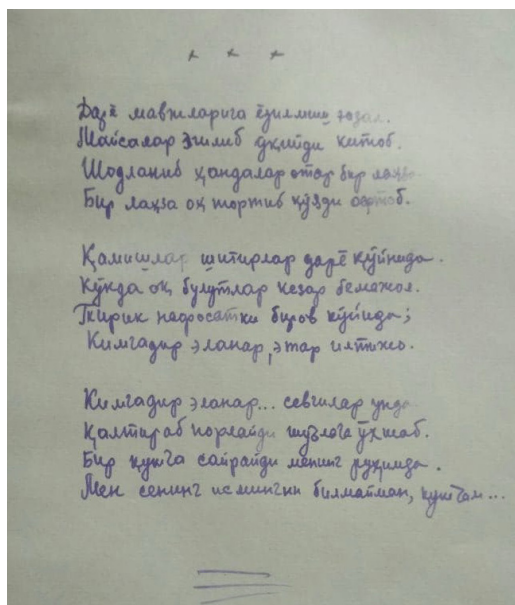 * * *
Дарё мавжларига ёзилмиш ғазал.
Майсалар эгилиб ўқийди китоб.
Шодланиб хандалар отар бир лаҳза
Бир лаҳза оқ тортиб кўзди офтоб.
Қамишлар шитирлар дарё қўйнида.
Кўкда оқ булутлар кезар бемажол.
Тирик нафосатки биров кўйида;
Кимгадир эланар, этар илтижо.
Кимгадир эланар... севгилар унда
Қалтираб порлайди шуълага ўхшаб.
Бир қушча сайрайди менинг руҳимда.
Мен сенинг исмингни билмайман, қушчам...